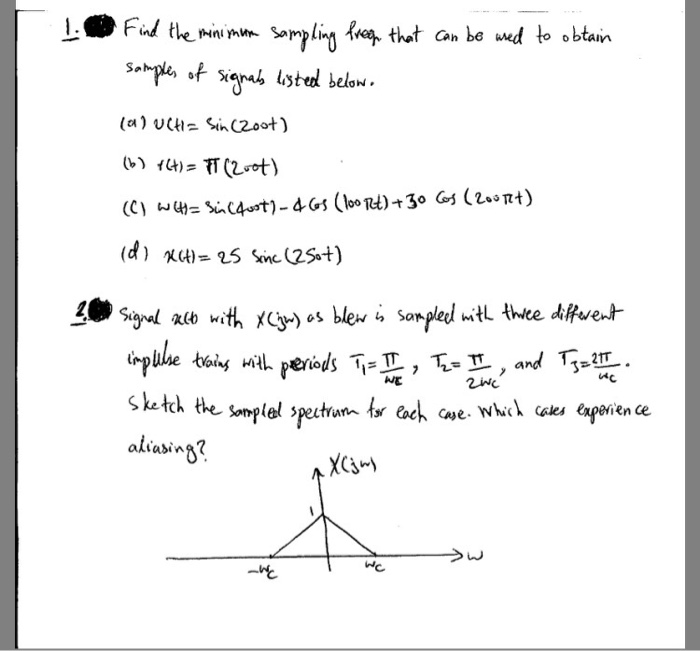 1. Find the minimum sampling freq that can be used to obtain
samples of signals listed below.
(a) v(t) = sin(200t)
(b) r(t) = π(200t)
(c) w(t) = sin(400t) - 4 cos(100πt) + 30 cos(200πt)
(d) x(t) = 25 sinc(250t)
2. Signal x(t) with X(jw) as blew is sampled with three different
impulse trains with periods T₁ = π/wc, T₂ = π/2wc, and T₃ = 2π/wc.
Sketch the sampled spectrum for each case. Which cases experience
aliasing?
X(jw)
1
-wc wc w